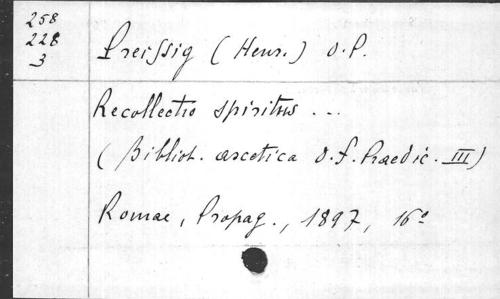 258
228
3
Preissig (Henr.) O.P.
Recollectio spiritus ...
(Biblioth. ascetica O.f.Praedic. III)
Romae, Propag., 1897, 16°